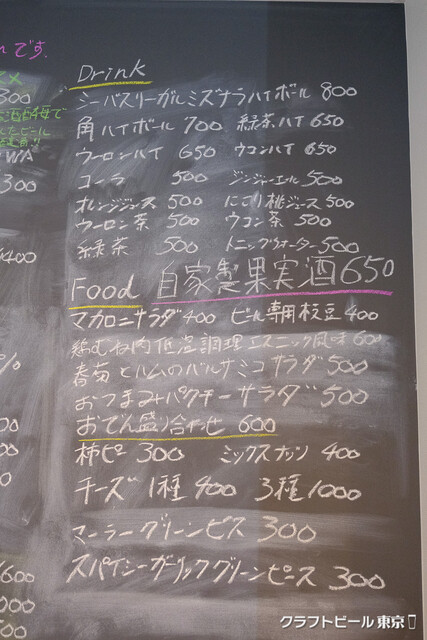 れです。
300
ビール
WA
300
¥400
%
00
0
600
000
00
Drink
シーバスリーガルミズナラハイボール 800
角ハイボール 700 緑茶ハイ 650
ウーロンハイ 650 ウコンハイ 650
コーラ 500 ジンジャーエール 500
オレンジジュース 500 にごり桃ジュース 500
ウーロン茶 500 ウコン茶 500
緑茶 500 トニックウォーター 500
Food 自家製果実酒 650
マカロニサラダ 400 ビール専用枝豆 400
鶏むね肉低温調理エスニック風味 600
春菊とハムのバルサミコサラダ 500
おつまみパクチーサラダ 500
おでん盛り合わせ 600
柿ピ 300 ミックスナッツ 400
チーズ 1種 400 3種 1000
マーラーグリーンピス 300
スパイシーガーリックグリーンピース 300
クラフトビール東京